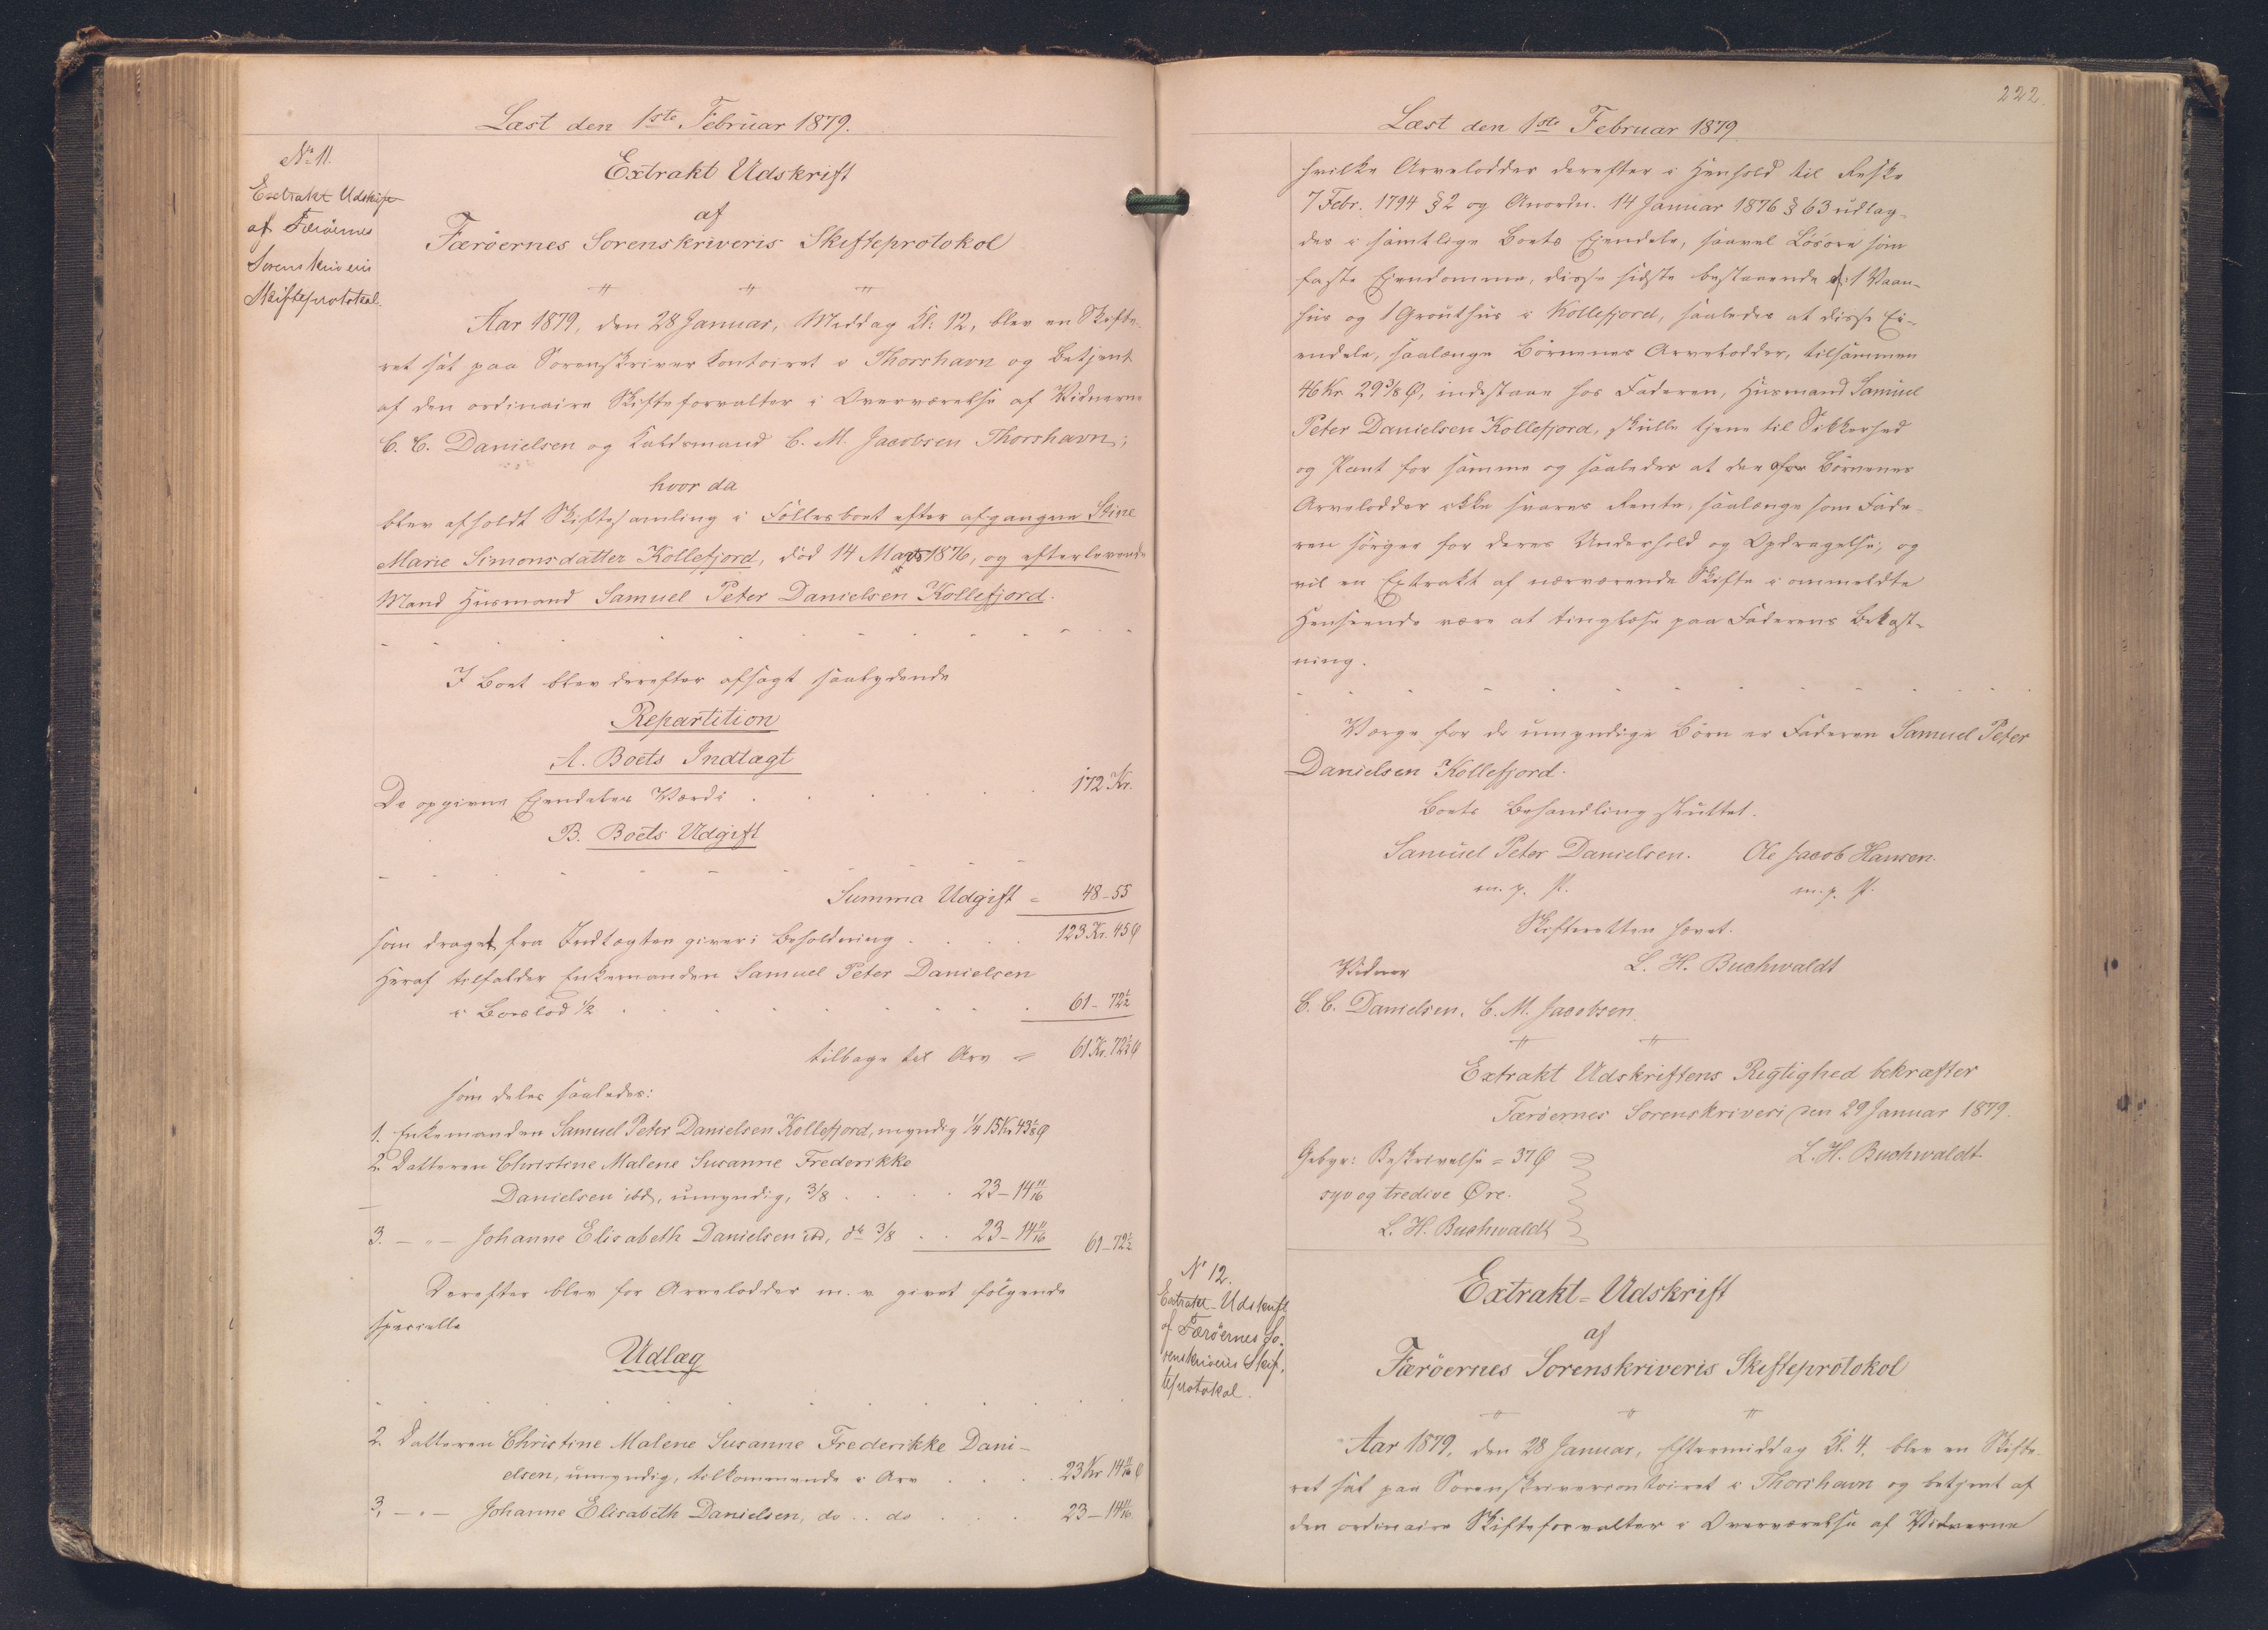 Læst den 1ste Februar 1879.
No 11.
Extrakt Udskrift
af Færöernes
Sorenskriveris
Skifteprotokol.
Extrakt Udskrift
af
Færöernes Sorenskriveris Skifteprotokol
Aar 1879, den 28 Januar, Middag Kl: 12, blev en Skifte-
ret sat paa Sorenskriver Contoiret i Thorshavn og betjent
af den ordinaire Skifteforvalter i Overværelse af Vidnerne
C. C. Danielsen og Kaldsmand C. M. Jacobsen Thorshavn;
hvor da
blev afholdt Skiftesamling i Fællesboet efter afgangne Stine
Marie Simonsdatter Kollefjord, död 14 Marts 1876, og efterlevende
Mand Husmand Samuel Peter Danielsen Kollefjord.
I Boet blev derefter afsagt saalydende
Repartition
A. Boets Indtægt
De opgivne Ejendeles Værdi 172 Kr.
B. Boets Udgift
Summa Udgift = 48-55
som draget fra Indtægten giver i Beholdning 123 Kr. 45 Ø
Heraf tilfalder Enkemanden Samuel Peter Danielsen
i Boeslod 1/2 61-72 1/2
tilbage til Arv = 61 Kr. 72 1/2 Ø
som deles saaledes:
1. Enkemanden Samuel Peter Danielsen Kollefjord, myndig 1/4 15 Kr 43 1/8 Ø
2. Datteren Christine Malene Susanne Frederikke
Danielsen ibd, umyndig, 3/8 23-14 11/16
3. - " - Johanne Elisabeth Danielsen ibd, do 3/8 23-14 11/16 61-72 1/2
Derefter blev for Arvelodder m. v. givet fölgende
specielle
Udlæg
2. Datteren Christine Malene Susanne Frederikke Dani-
elsen, umyndig, tilkommende i Arv 23 Kr 14 11/16 Ø
3, - " - Johanne Elisabeth Danielsen, do .. do 23-14 11/16
222.
Læst den 1ste Februar 1879
hvilke Arvelodder derefter i Henhold til Reskr
7 Febr. 1794 § 2 og Anordn. 14 Januar 1876 § 63 udlag-
des i samtlige Boets Ejendele, saavel Lösöre som
faste Ejendomme, disse sidste bestaaende af: 1 Vaan-
hus og 1 Grouthus i Kollefjord, saaledes at disse Ei-
endele, saalænge Börnenes Arvelodder, tilsammen
46 Kr. 29 3/8 Ø, indestaae hos Faderen, Husmand Samuel
Peter Danielsen Kollefjord, skulle tjene til Sikkerhed
og Pant for samme og saaledes at der af Börnenes
Arvelodder ikke svares Rente, saalænge som Fade-
ren sörger for deres Underhold og Opdragelse, og
vil en Extrakt af nærværende Skifte i ommeldte
Henseende være at tinglæse paa Faderens Bekost-
ning.
Værge for de umyndige Börn er Faderen Samuel Peter
Danielsen Kollefjord.
Boets Behandling sluttet.
Samuel Peter Danielsen. Ole Jacob Hansen.
m. p. P. m. p. P.
Skifteretten hævet.
L. H. Buchwaldt
Vidner
C. C. Danielsen. C. M. Jacobsen.
Extrakt Udskriftens Rigtighed bekræfter
Færöernes Sorenskriveri den 29 Januar 1879.
L. H. Buchwaldt
Gebyr: Beskrivelse = 37 Ø
syv og tredive Öre.
L. H. Buchwaldt
No 12.
Extrakt-Udskrift
af Færöernes So-
renskriveris Skif-
teprotokol.
Extrakt-Udskrift
af
Færöernes Sorenskriveris Skifteprotokol
Aar 1879, den 28 Januar, Eftermiddag Kl. 4, blev en Skifte-
ret sat paa Sorenskrivercontoiret i Thorshavn og betjent af
den ordinaire Skifteforvalter i Overværelse af Vidnerne